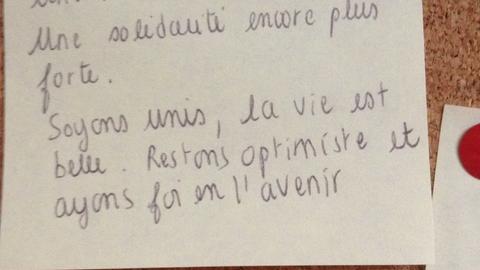 Une solidarité encore plus
forte.
Soyons unis, la vie est
belle. Restons optimiste et
ayons foi en l'avenir